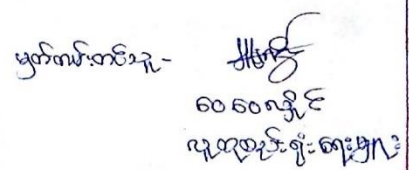 မှတ်တမ်းတင်သူ -
ဝေဝေလှိုင်
လူထုတည်းရုံးရေးမှူး